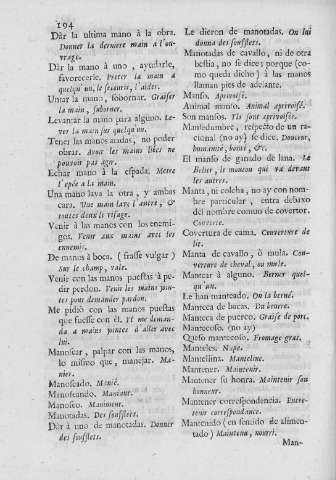 194
Dàr la ultima mano à la obra.
Donner la derniere main à l'ou-
vrage.
Dàr la mano à uno, ayudarle,
favorecerle. Preter la main a
quelqu'un, le secourir, l'aider.
Untar la mano, sobornar. Graiser
la main, suborner.
Levantar la mano para alguno. Le-
ver la main sur quelqu'un.
Tener las manos atadas, no poder
obrar. Avoir les mains liées ne
pouvoir pas agir.
Echar mano à la espada. Metre
l'epée a la main.
Una mano lava la otra, y ambas
cara. Une main lave l'autre, &
toutes deux le visage.
Venir à las manos con los enemi-
gos. Venir aux mains avec les
ennemis.
De manos à boca. (frasse vulgar)
Sur le champ, vite.
Venir con las manos puestas à pe-
dir perdon. Venir les mains join-
tes pour demander pardon.
Me pidiò con las manos puestas
que fuesse con èl. Il me deman-
da a mains jointes d'aller avec
lui.
Manosear, palpar con las manos,
lo mismo que, manejar. Ma-
nier.
Manoseado. Manié.
Manoseando. Maniant.
Manoseo. Maniment.
Manotadas. Des soufflets.
Dàr à uno de manotadas. Donner
des soufflets.
Le dieron de manotadas. On lui
donna des soufflets.
Manotadas de cavallo, ni de otra
bestia, no se dice; porque (co-
mo queda dicho) à las manos
llaman pies de adelante.
Manso. Aprivoisé.
Animal manso. Animal aprivoisé.
Son mansos. Ils sont aprivoisés.
Mansedumbre, respecto de un ra-
cional (no ay) se dice. Douceur,
humanité, bonté, &c.
El manso de ganado de lana. Le
Belier, le mouton qui va devant
les autres.
Manta, ni colcha, no ay con nom-
bre particular, entra debaxo
del nombre comun de covertor.
Couverture.
Covertura de cama. Couverture de
lit.
Manta de cavallo, ò mula. Cou-
verture de cheval, ou mule.
Mantear à alguno. Berner quel-
qu'un.
Le han manteado. On la berné.
Manteca de bacas. Du beurre.
Manteca de puerco. Graise de porc.
Mantecoso. (no ay)
Queso mantecoso. Fromage gras.
Manteles. Nape.
Mantellina. Manteline.
Mantener. Maintenir.
Mantener su honra. Maintenir son
honneur.
Mantener correspondencia. Entre-
tenir correspondance.
Mantenido (en sentido de alimen-
tado) Maintenu, nourri.
Man-